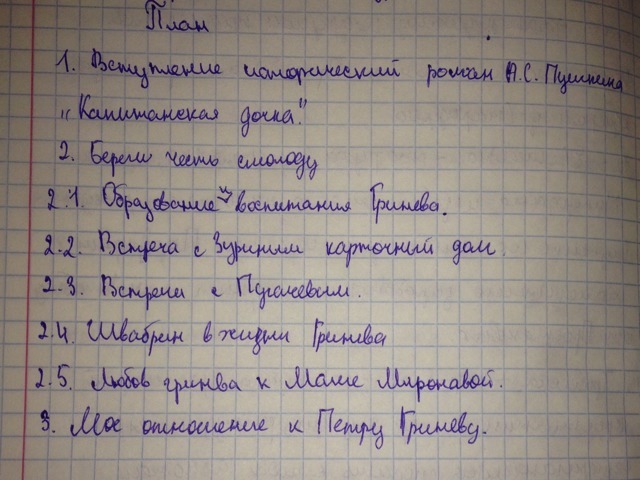 План
1. Вступление исторический роман А.С. Пушкина
"Капитанская дочка."
2. Береги честь смолоду
2.1. Образование и воспитания Гринева.
2.2. Встреча с Зуриным карточный долг.
2.3. Встречи с Пугачевым.
2.4. Швабрин в жизни Гринева
2.5. Любов гринва к Маше Мироновой.
3. Мое отношение к Петру Гриневу.